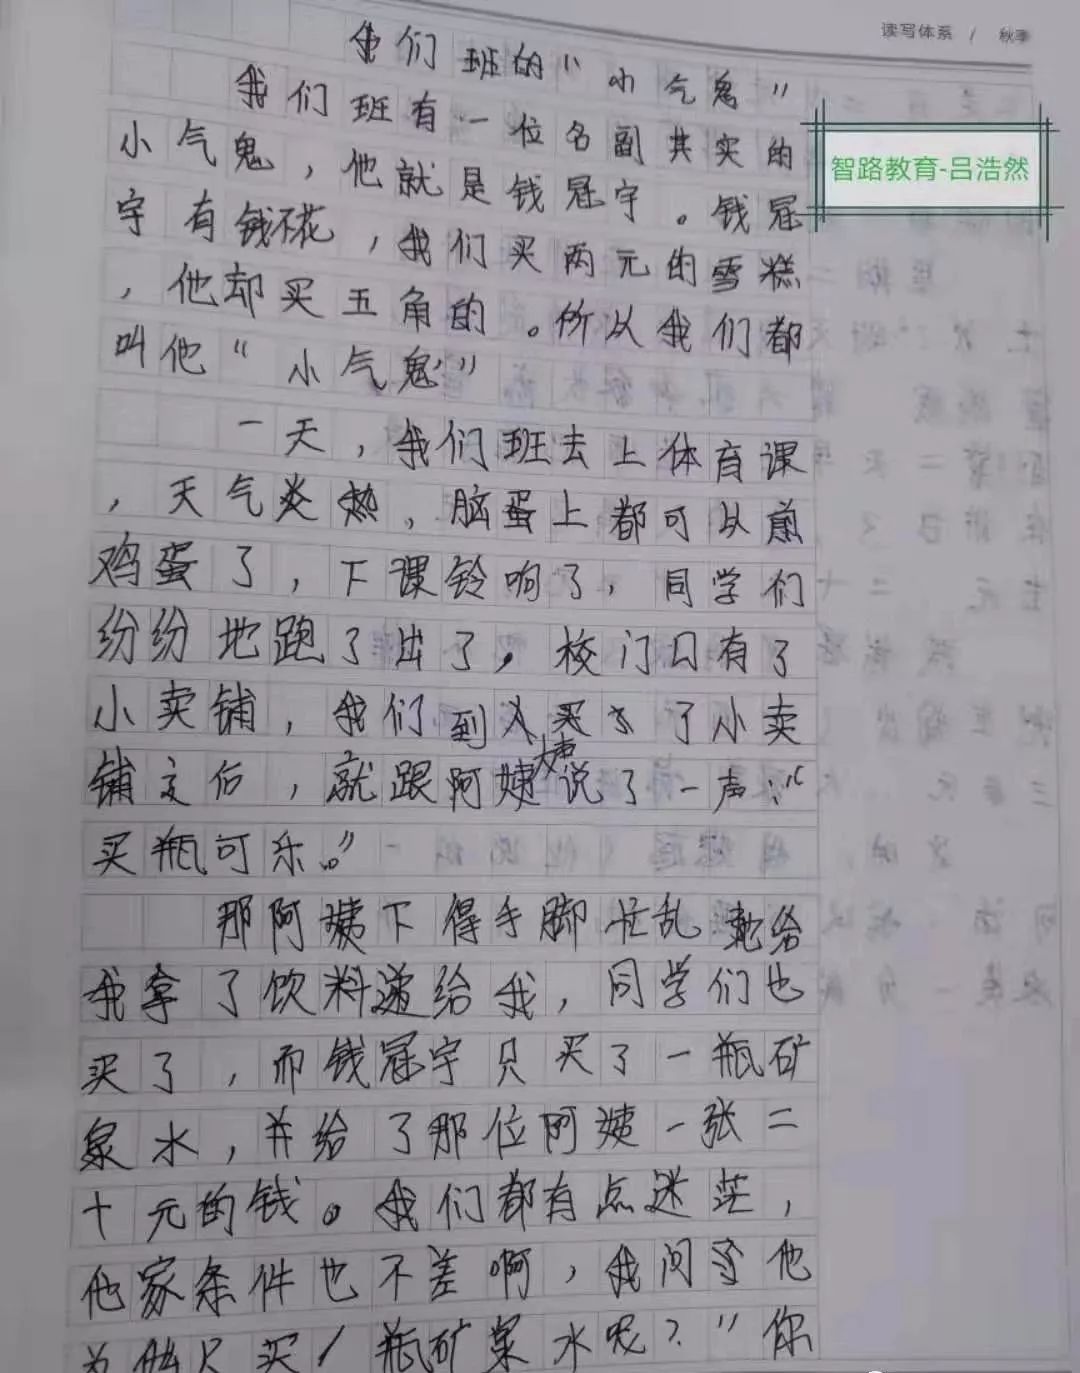 读写体系 / 秋季
我们班的“小气鬼”
智路教育-吕浩然
我们班有一位名副其实的
小气鬼，他就是钱冠宇。钱冠
宇有钱不花，我们买两元的雪糕
，他却买五角的。所以我们都
叫他“小气鬼”
一天，我们班去上体育课
，天气炎热，脑蛋上都可以煎
鸡蛋了，下课铃响了，同学们
纷纷地跑了出了，校门口有了
小卖铺，我们到了小卖
铺之后，就跟阿姨大声说了一声：“
买瓶可乐。”
那阿姨下得手脚忙乱 给
我拿了饮料递给我，同学们也
买了，而钱冠宇只买了一瓶矿
泉水，并给了那位阿姨一张二
十元的钱。我们都有点迷茫，
他家条件也不差啊，我问了他
为啥只买1瓶矿泉水呢？”你